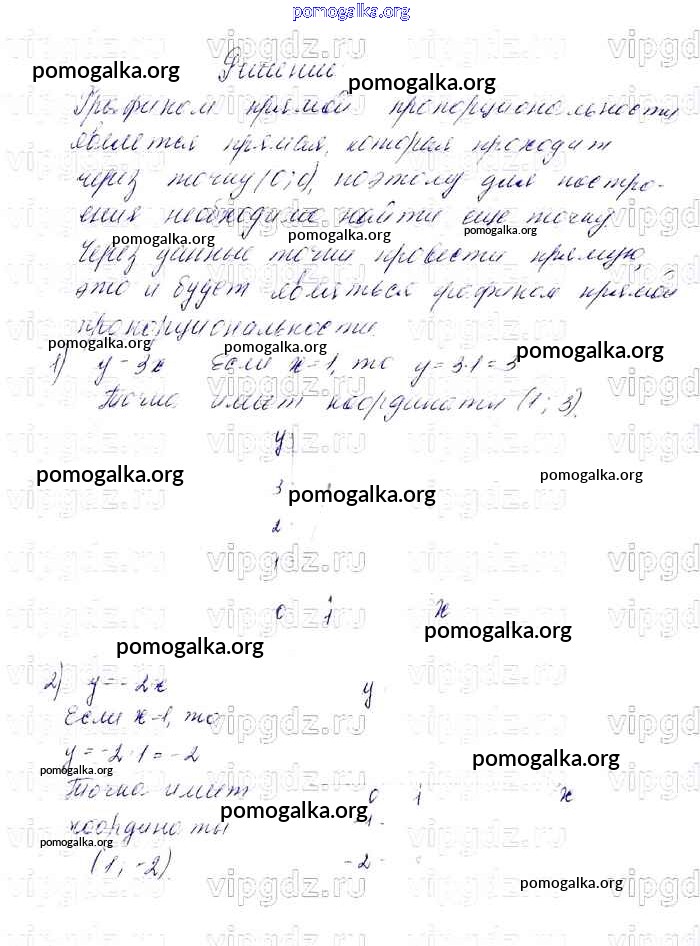 pomogalka.org
vipgdz.ru
pomogalka.org Решение pomogalka.org
Графиком прямой пропорциональности
является прямая, которая проходит
через точку (0; 0), поэтому для постро-
ения необходимо найти еще точку
pomogalka.org pomogalka.org pomogalka.org
Через данные точки провести прямую,
это и будет являться графиком прямой
пропорциональности
pomogalka.org pomogalka.org pomogalka.org
1) y = 3x Если x = 1, то y = 3·1 = 3
Точка имеет координаты (1; 3).
y
pomogalka.org 3 pomogalka.org pomogalka.org
2
1
vipgdz.ru vipgdz.ru vipgdz.ru
0 1 x
pomogalka.org pomogalka.org
2) y = -2x y
Если x = 1, то
y = -2·1 = -2
pomogalka.org pomogalka.org
Точка имеет 0 1 x
координаты pomogalka.org -1
(1, -2). -2
pomogalka.org
vipgdz.ru vipgdz.ru vipgdz.ru